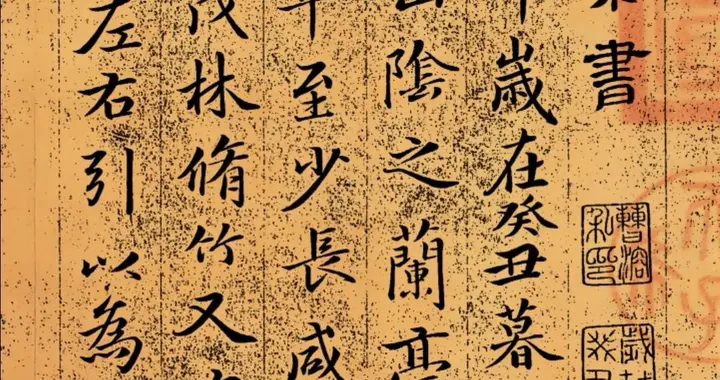 書
歲在癸丑暮
山陰之蘭亭
至少長咸
茂林脩竹又
左右引以為
曹溶私印